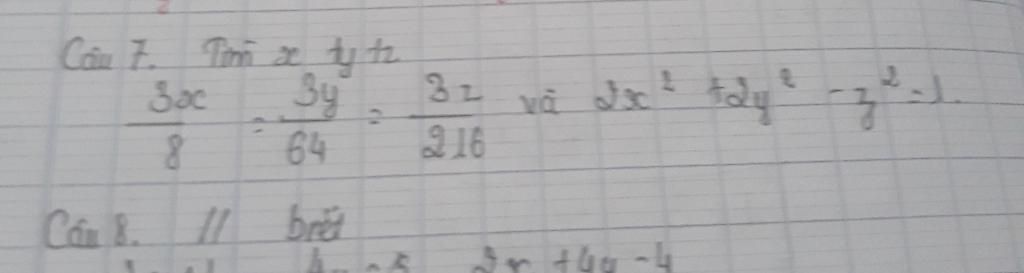 Câu 7. Tìm x ty tz
3x/8 = 3y/64 = 3z/216 và 2x² + 2y² - z² = 1.
Câu 8. // biết
2x + 4y - 4